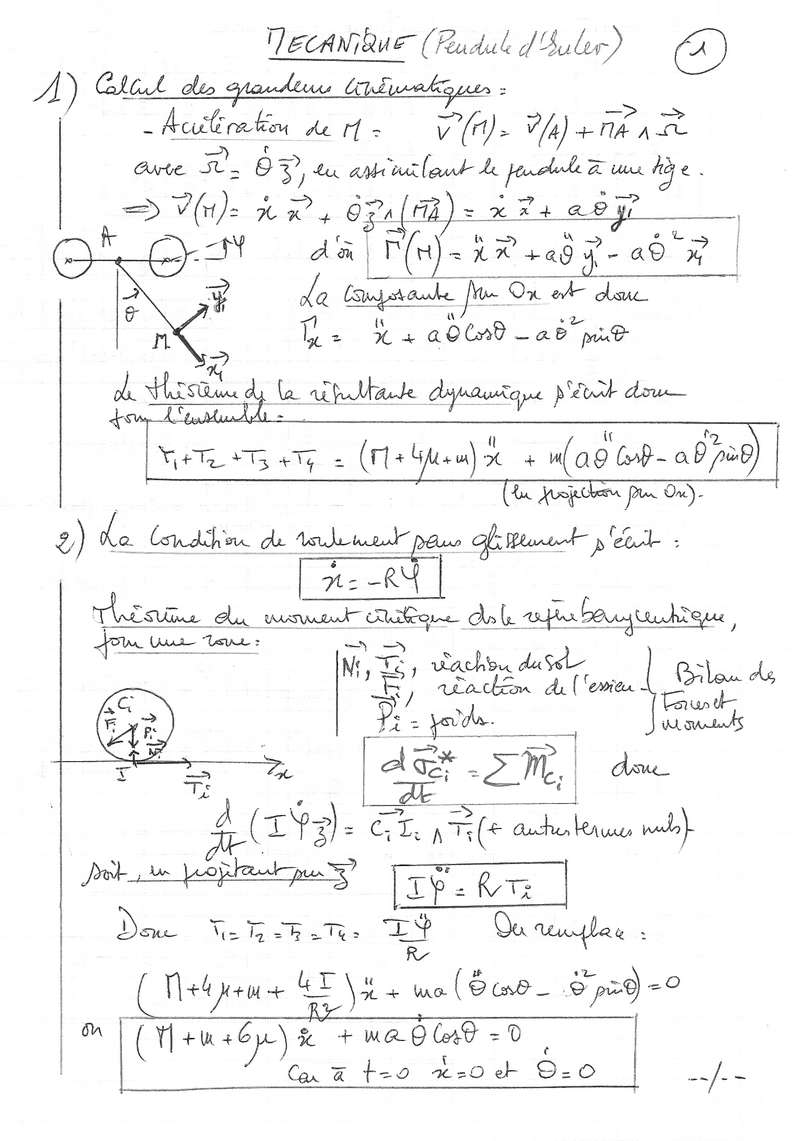 MECANIQUE (Pendule d'Euler) 1
1) Calcul des grandeurs cinématiques :
- Accélération de M = V⃗(M) = V⃗(A) + MA⃗ ∧ Ω⃗
avec Ω⃗ = θ̇ z⃗, en assimilant le pendule à une tige.
⟹ V⃗(M) = ẋ x⃗ + θ̇ z⃗ ∧ (MA⃗) = ẋ x⃗ + a θ̇ y⃗₁
A φ d'où Γ⃗(M) = ẍ x⃗ + a θ̈ y⃗₁ - a θ̇² x⃗₁
θ M y⃗₁ x⃗₁
La composante sur Ox est donc
Γx = ẍ + a θ̈ cosθ - a θ̇² sinθ
Le théorème de la résultante dynamique s'écrit donc
pour l'ensemble =
T₁ + T₂ + T₃ + T₄ = (M + 4μ + m) ẍ + m(a θ̈ cosθ - a θ̇² sinθ)
(en projection sur Ox).
2) La condition de roulement sans glissement s'écrit :
ẋ = -R φ̇
Théorème du moment cinétique ds le repère barycentrique,
pour une roue :
N⃗i, T⃗i, réaction du sol
F⃗i, réaction de l'essieu
P⃗i = poids.
Bilan des
Forces et
moments
Ci F⃗i P⃗i N⃗i
I T⃗i x
dσ⃗*Ci/dt = Σ M⃗Ci donc
d/dt (I φ̇ z⃗) = CiIi⃗ ∧ T⃗i (+ autres termes nuls)
soit, en projetant sur z⃗ I φ̈ = R Ti
Donc T₁ = T₂ = T₃ = T₄ = I φ̈/R On remplace :
(M + 4μ + m + 4I/R²) ẍ + ma (θ̈ cosθ - θ̇² sinθ) = 0
ou (M + m + 6μ) ẋ + m a θ̇ cosθ = 0
Car à t=0 ẋ=0 et θ̇ = 0
--/--